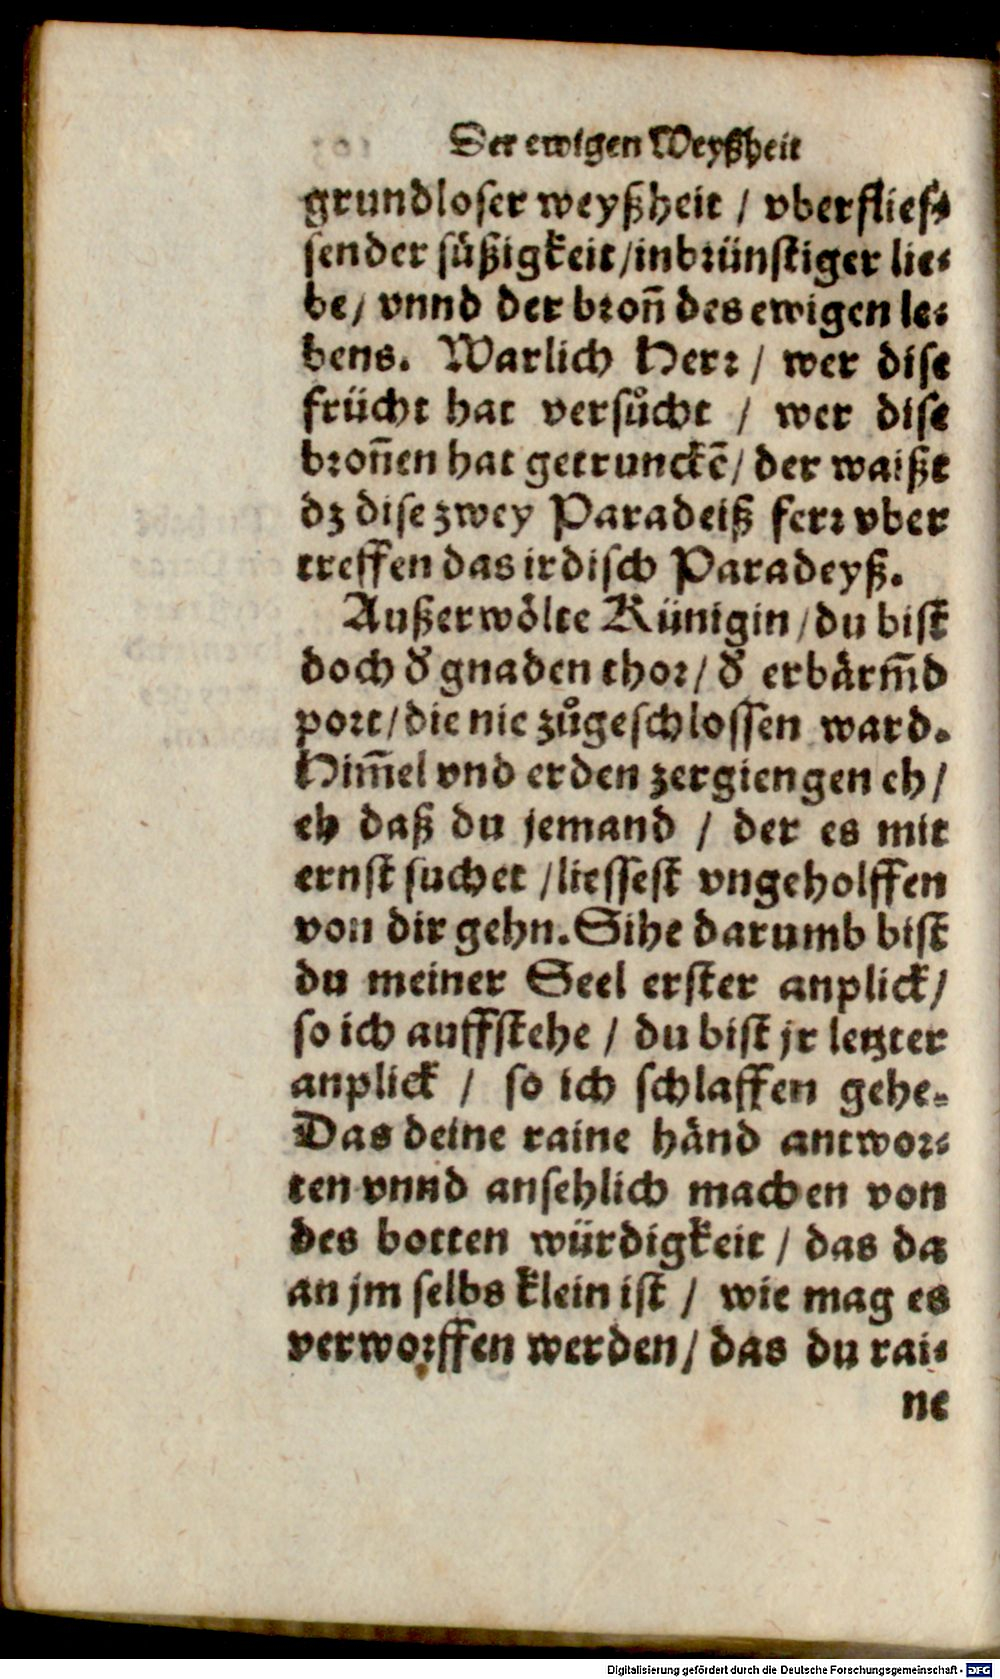 Der ewigen Weyßheit
grundloser weyßheit / vberflies-
sender süßigkeit/inbrünstiger lie-
be/ vnnd der bron̄ des ewigen le-
bens. Warlich Herr / wer dise
frücht hat versůcht / wer dise
bron̄en hat getrunckē/ der waißt
dz dise zwey Paradeiß ferr vber
treffen das irdisch Paradeyß.
Außerwölte Künigin/du bist
doch d' gnaden thor/ d' erbärm̄d
port/die nie zůgeschlossen ward.
Him̄el vnd erden zergiengen eh/
eh daß du jemand / der es mit
ernst suchet /liessest vngeholffen
von dir gehn. Sihe darumb bist
du meiner Seel erster anplick/
so ich auffstehe / du bist jr letzter
anplick / so ich schlaffen gehe.
Das deine raine händ antwor-
ten vnnd ansehlich machen von
des botten würdigkeit / das da
an jm selbs klein ist / wie mag es
verworffen werden/ das du rai-
ne
Digitalisierung gefördert durch die Deutsche Forschungsgemeinschaft - DFG